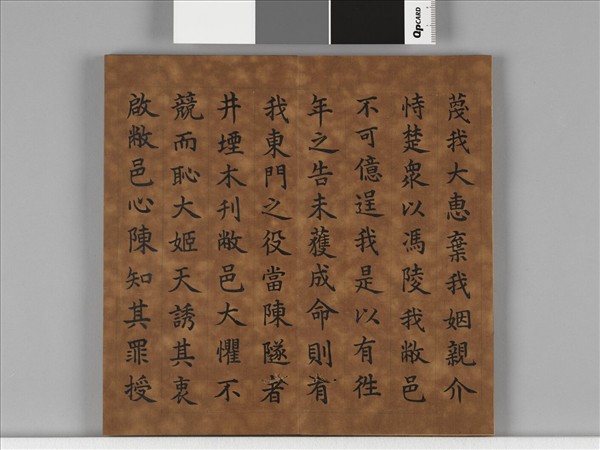 QPCARD
蔑我大惠棄我姻親介
恃楚衆以馮陵我敝邑
不可億逞我是以有徃
年之告未獲成命則有
我東門之役當陳隧者
井堙木刊敝邑大懼不
競而恥大姬天誘其衷
啟敝邑心陳知其罪授